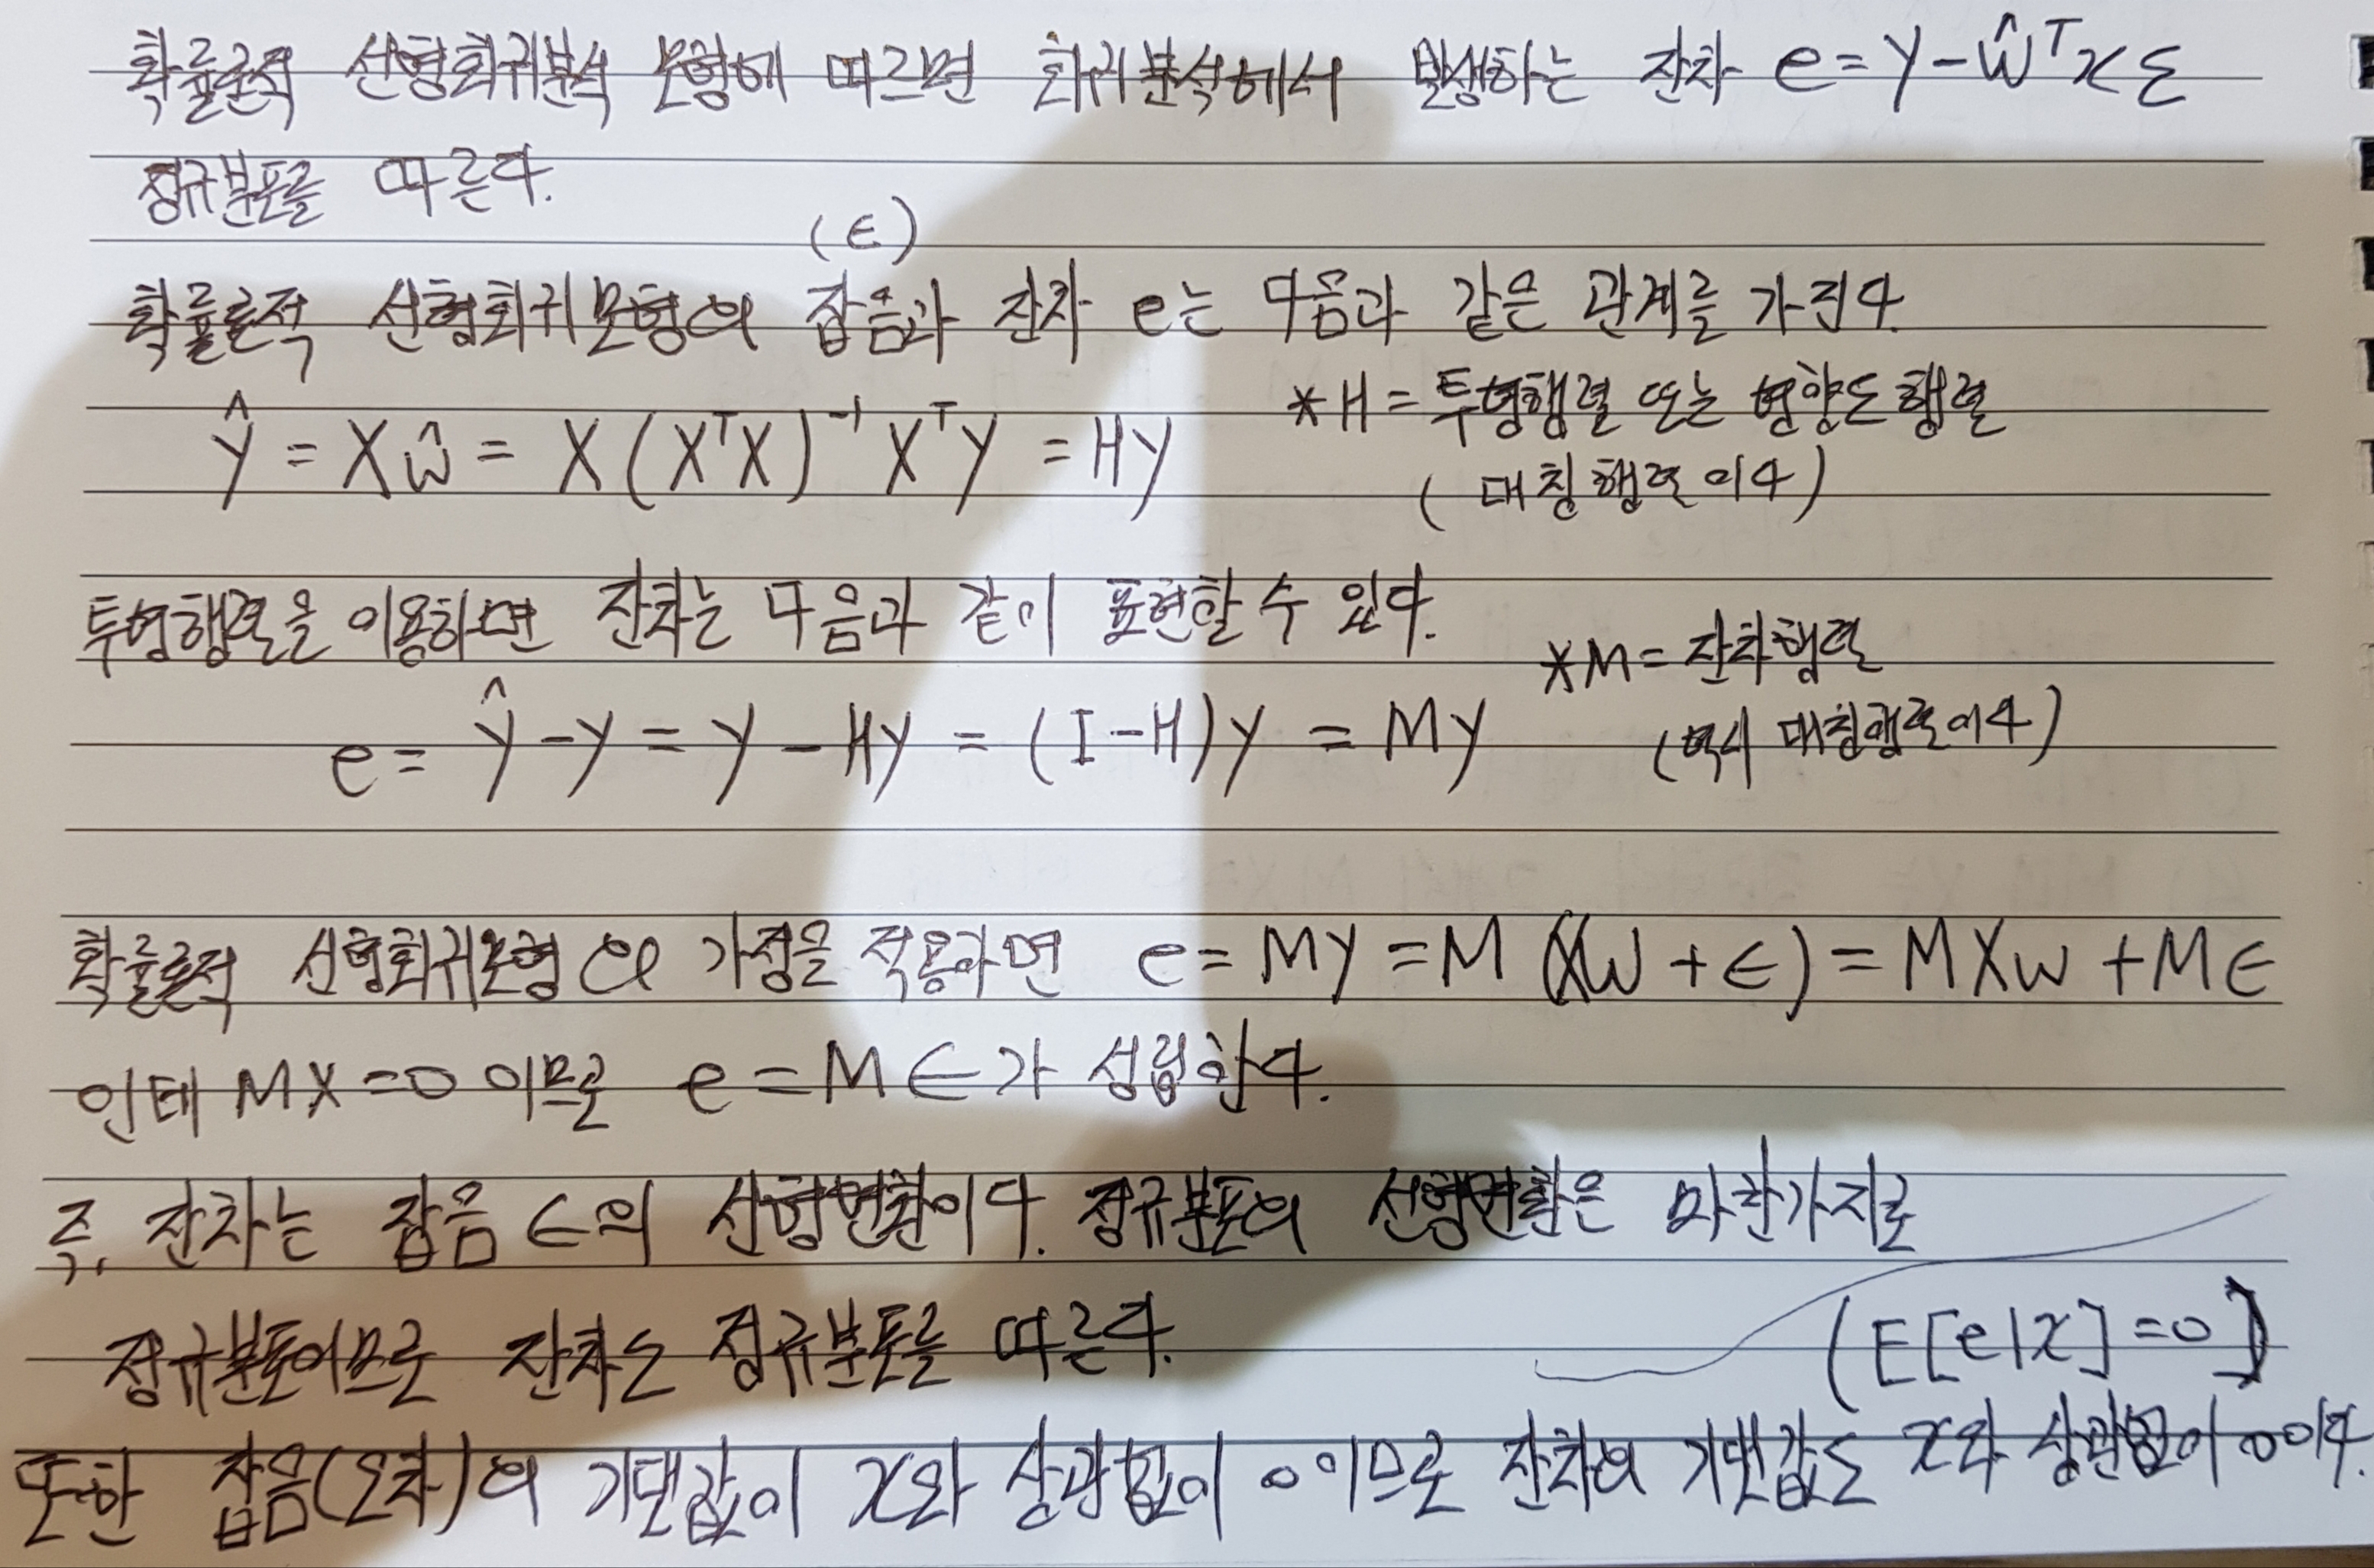 확률론적 선형회귀분석 모형에 따르면 회귀분석에서 발생하는 잔차 e = y - ŵᵀx도
정규분포를 따른다.
(ϵ)
확률론적 선형회귀모형의 잡음과 잔차 e는 다음과 같은 관계를 가진다.
ŷ = Xŵ = X(XᵀX)⁻¹Xᵀy = Hy
*H = 투영행렬 또는 영향도행렬
(대칭행렬이다)
투영행렬을 이용하면 잔차는 다음과 같이 표현할 수 있다.
e = ŷ - y = y - Hy = (I - H)y = My
*M = 잔차행렬
(역시 대칭행렬이다)
확률론적 선형회귀모형의 가정을 적용하면 e = My = M(Xw + ϵ) = MXw + Mϵ
인데 MX = 0 이므로 e = Mϵ가 성립한다.
즉, 잔차는 잡음 ϵ의 선형변환이다. 정규분포의 선형변환은 마찬가지로
정규분포이므로 잔차도 정규분포를 따른다.
(E[e|x] = 0)
또한 잡음(오차)의 기댓값이 x와 상관없이 0이므로 잔차의 기댓값도 x와 상관없이 0이다.